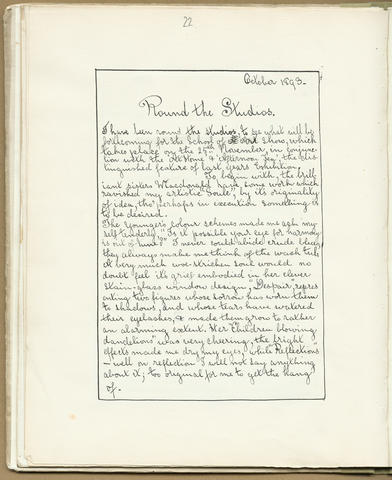 22
October 1893-
Round the Studios.
I have been round the studios, to see what will be
forthcoming for the School of Art Show, which
takes place on the 29th November, in conjunc-
tion with the "At Home & Afternoon Tea", the dis-
tinguished feature of last years Exhibition.
To begin with, the brill-
iant sisters Macdonald have some work which
ravished my artistic soul, by its originality
of idea, tho' perhaps in execution something is
to be desired.
The Younger's colour schemes made me ask my-
self tenderly, "Is it possible your eye for harmony
is out of tune"? I never could abide crude blue,
they always make me think of the wash tub.
A very much woe-stricken soul would no
doubt feel its grief embodied in her clever
stain-glass window design, "Despair, repres
enting two figures whose sorrow has worn them
to shadows, and whose tears have watered
their eyelashes, & made them grow to rather
an alarming extent. Her "Children blowing
dandelions" was very cheering, the bright
effects made me dry my eyes, while "Reflections"
- well on reflection I will not say anything
about it; too original for me to get the hang
of.